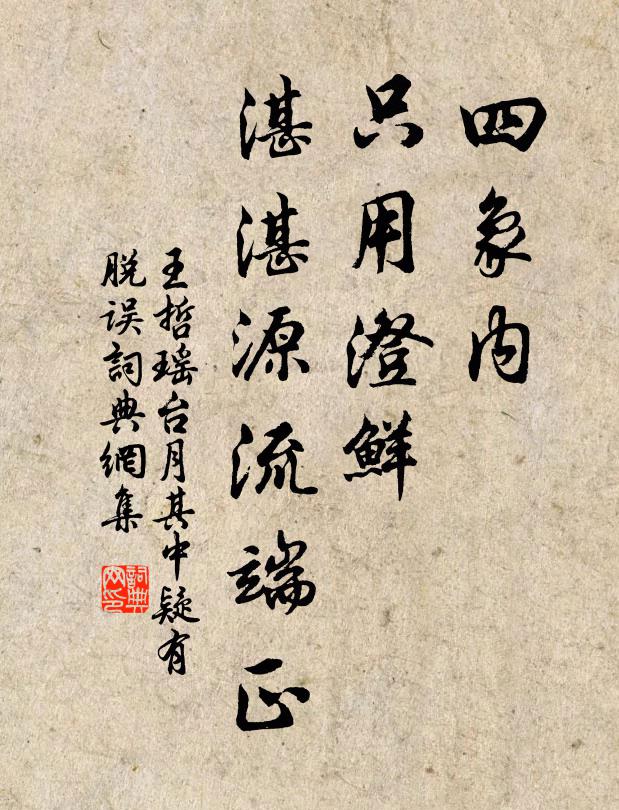 四象内
只用澄鮮
湛湛源流端正
王哲瑶台月其中疑有
脱误詞典網集
詞典
网印